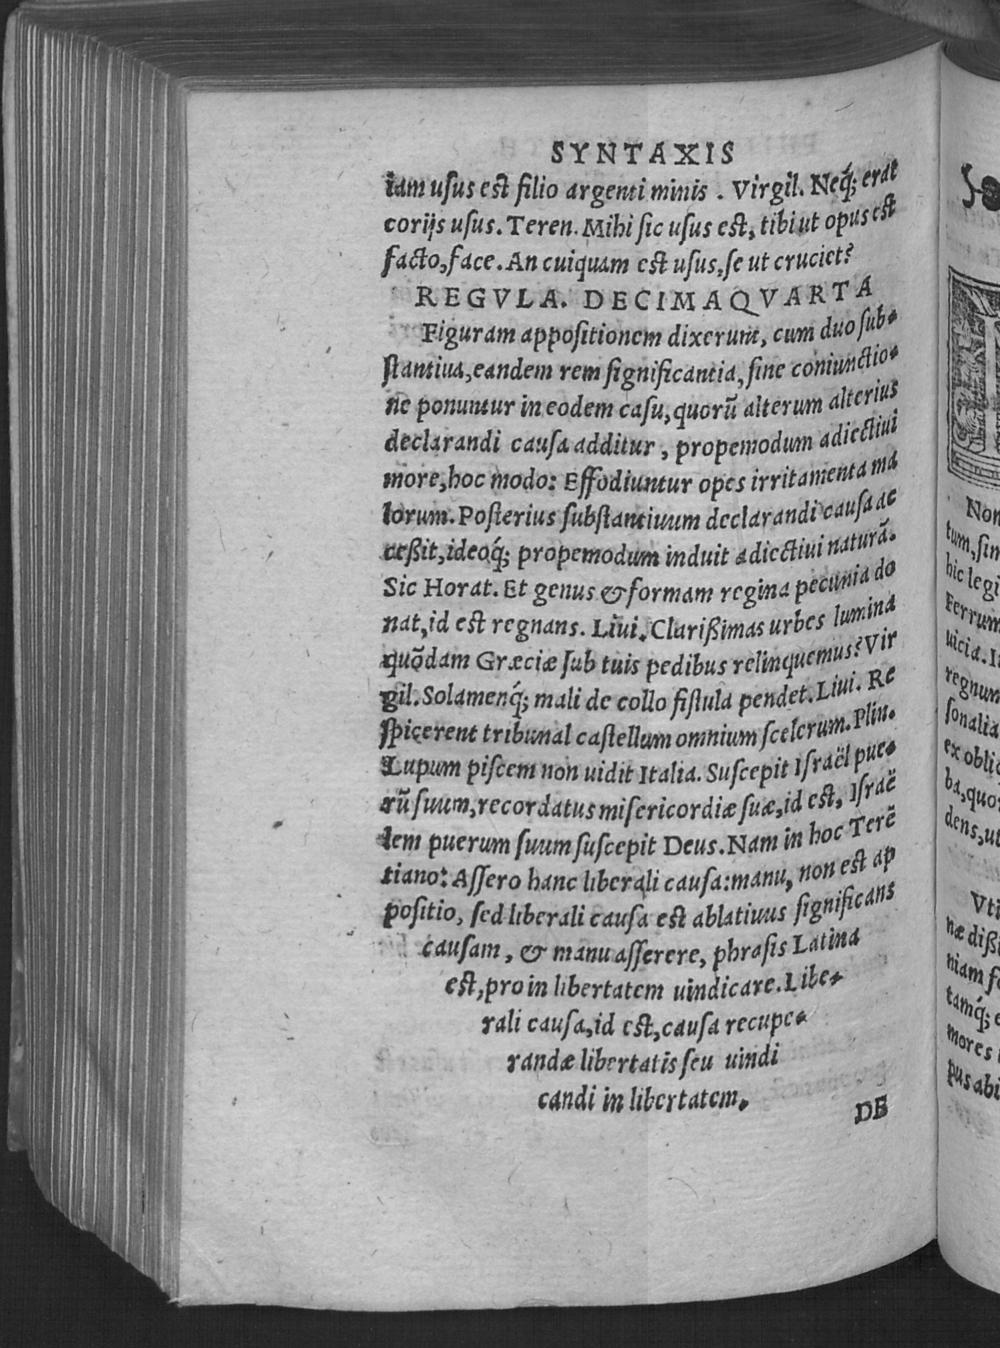 SYNTAXIS
iam uſus eſt filio argenti minis . Virgil. Neq́; erat
corijs uſus. Teren. Mihi ſic uſus eſt, tibi ut opus eſt
facto, face. An cuiquam eſt uſus, ſe ut cruciet?
REGVLA. DECIMAQVARTA
Figuram appoſitionem dixerunt, cum duo ſub-
ſtantiua, eandem rem ſignificantia, ſine coniunctio-
ne ponuntur in eodem caſu, quorũ alterum alterius
declarandi cauſa additur , propemodum adiectiui
more, hoc modo: Effodiuntur opes irritamenta ma
lorum. Poſterius ſubſtantiuum declarandi cauſa ac
ceßit, ideoq́; propemodum induit adiectiui naturã.
Sic Horat. Et genus & formam regina pecunia do
nat, id eſt regnans. Liui. Clarißimas urbes lumina
quõdam Græciæ ſub tuis pedibus relinquemus? Vir
gil. Solamenq́; mali de collo fiſtula pendet. Liui. Re
ſpicerent tribunal caſtellum omnium ſcelerum. Plin.
Lupum piſcem non uidit Italia. Suſcepit Iſraël pue-
rũ ſuum, recordatus miſericordiæ ſuæ, id eſt, Iſraë
lem puerum ſuum ſuſcepit Deus. Nam in hoc Terẽ
tiano: Aſſero hanc liberali cauſa: manu, non eſt ap
poſitio, ſed liberali cauſa eſt ablatiuus ſignificans
cauſam, & manu aſſerere, phraſis Latina
eſt, pro in libertatem uindicare. Libe-
rali cauſa, id eſt, cauſa recupe-
randæ libertatis ſeu uindi
candi in libertatem.
DE
Non
tum, ſim
hic legi
Ferrum
uicia. I
regnum
ſonalia
ex obliq
ba, quo
dens, ut
Vti
næ dißi
niam f
tamq́; e
mores
pus abi